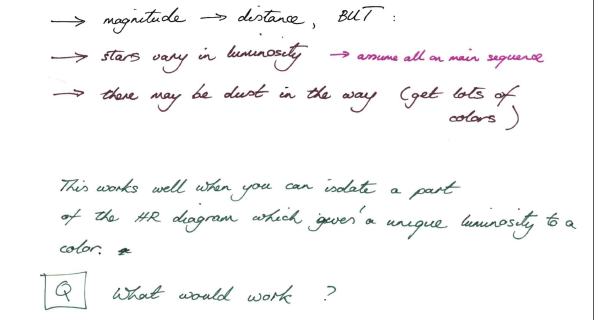 → magnitude → distance, BUT :
→ stars vary in luminosity → assume all on main sequence
→ there may be dust in the way (get lots of
colors)
This works well when you can isolate a part
of the HR diagram which gives a unique luminosity to a
color.
Q What would work ?